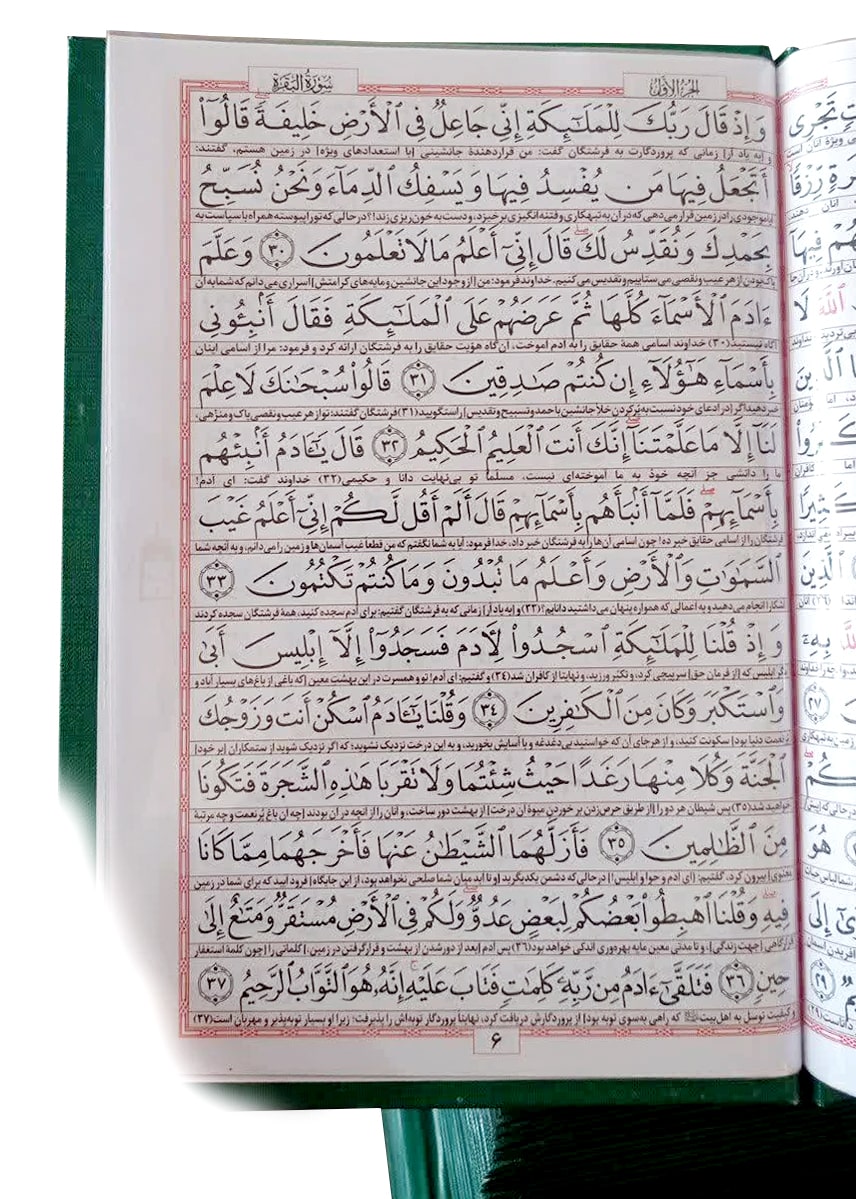 الجزء الأول
سورة البقرة
وَإِذْ قَالَ رَبُّكَ لِلْمَلَٰٓئِكَةِ إِنِّي جَاعِلٌ فِي الْأَرْضِ خَلِيفَةً قَالُوٓا۟
و [به یاد آر] زمانی که پروردگارت به فرشتگان گفت: من قراردهندهٔ جانشینی [با استعدادهای ویژه] در زمین هستم، گفتند:
أَتَجْعَلُ فِيهَا مَن يُفْسِدُ فِيهَا وَيَسْفِكُ الدِّمَآءَ وَنَحْنُ نُسَبِّحُ
موجودی را در زمین قرار می‌دهی که در آن به تبهکاری و فتنه‌انگیزی برخیزد، و دست به خون‌ریزی زند؟! در حالی که تو را پیوسته همراه با سپاست به
بِحَمْدِكَ وَنُقَدِّسُ لَكَ قَالَ إِنِّيٓ أَعْلَمُ مَا لَا تَعْلَمُونَ ﴿٣٠﴾ وَعَلَّمَ
پاک بودن از هر عیب و نقصی می‌ستاییم و تقدیس می‌کنیم. خداوند فرمود: من [از وجود این جانشین و مایه‌های کرامتش] اسراری می‌دانم که شما به آن
ءَادَمَ الْأَسْمَآءَ كُلَّهَا ثُمَّ عَرَضَهُمْ عَلَى الْمَلَٰٓئِكَةِ فَقَالَ أَنۢبِـُٔونِي
آگاه نیستید(۳۰) خداوند اسامی همهٔ حقایق را به آدم آموخت، آن‌گاه هویت حقایق را به فرشتگان ارائه کرد و فرمود: مرا از اسامی اینان
بِأَسْمَآءِ هَٰٓؤُلَآءِ إِن كُنتُمْ صَادِقِينَ ﴿٣١﴾ قَالُوا سُبْحَانَكَ لَا عِلْمَ
خبر دهید اگر [در ادعای خود نسبت به پُر کردن خلأ جانشین با حمد و تسبیح و تقدیس] راستگویید(۳۱) فرشتگان گفتند: تو از هر عیب و نقصی پاک و منزّهی،
لَنَآ إِلَّا مَا عَلَّمْتَنَآ إِنَّكَ أَنتَ الْعَلِيمُ الْحَكِيمُ ﴿٣٢﴾ قَالَ يَٰٓـَٔادَمُ أَنۢبِئْهُم
ما را دانشی جز آنچه خود به ما آموخته‌ای نیست، مسلماً تو بی‌نهایت دانا و حکیمی(۳۲) خداوند گفت: ای آدم!
بِأَسْمَآئِهِمْ فَلَمَّآ أَنۢبَأَهُم بِأَسْمَآئِهِمْ قَالَ أَلَمْ أَقُل لَّكُمْ إِنِّيٓ أَعْلَمُ غَيْبَ
فرشتگان را از اسامی حقایق خبر ده! چون اسامی آن‌ها را به فرشتگان خبر داد، خدا فرمود: آیا به شما نگفتم که من قطعاً غیب آسمان‌ها و زمین را می‌دانم، و به آنچه شما
السَّمَٰوَٰتِ وَالْأَرْضِ وَأَعْلَمُ مَا تُبْدُونَ وَمَا كُنتُمْ تَكْتُمُونَ ﴿٣٣﴾
آشکارا انجام می‌دهید و به اعمالی که همواره پنهان می‌داشتید دانایم؟(۳۳) و [به یاد آر] زمانی که به فرشتگان گفتیم: برای آدم سجده کنید، همهٔ فرشتگان سجده کردند
وَإِذْ قُلْنَا لِلْمَلَٰٓئِكَةِ اسْجُدُوا لِأَدَمَ فَسَجَدُوٓا۟ إِلَّآ إِبْلِيسَ أَبَىٰ
مگر ابلیس که [از فرمان حق] سرپیچی کرد، و تکبّر ورزید، و نهایتاً از کافران شد(۳۴) و گفتیم: ای آدم! تو و همسرت در این بهشت معین [که باغی از باغ‌های بسیار آباد و
وَاسْتَكْبَرَ وَكَانَ مِنَ الْكَافِرِينَ ﴿٣٤﴾ وَقُلْنَا يَٰٓـَٔادَمُ اسْكُنْ أَنتَ وَزَوْجُكَ
پرنعمت دنیا بود] سکونت کنید، و از هر جای آن که خواستید بی‌دغدغه و با آسایش بخورید، و به این درخت نزدیک نشوید؛ که اگر نزدیک شوید از ستمکاران [بر خود]
الْجَنَّةَ وَكُلَا مِنْهَا رَغَدًا حَيْثُ شِئْتُمَا وَلَا تَقْرَبَا هَٰذِهِ الشَّجَرَةَ فَتَكُونَا
خواهید شد(۳۵) پس شیطان هر دو را [از طریق حرص زدن بر خوردن میوهٔ آن درخت] از بهشت دور ساخت، و آنان را از آنچه در آن بودند [چه آن باغ پُرنعمت و چه مرتبهٔ
مِنَ الظَّالِمِينَ ﴿٣٥﴾ فَأَزَلَّهُمَا الشَّيْطَٰنُ عَنْهَا فَأَخْرَجَهُمَا مِمَّا كَانَا
معنوی] بیرون کرد، گفتیم: [ای آدم و حوا و ابلیس!] درحالی که دشمن یکدیگرید [و تا ابد میان شما صلحی نخواهد بود، از این جایگاه] فرود آیید که برای شما در زمین
فِيهِ وَقُلْنَا اهْبِطُوا بَعْضُكُمْ لِبَعْضٍ عَدُوٌّ وَلَكُمْ فِي الْأَرْضِ مُسْتَقَرٌّ وَمَتَاعٌ إِلَىٰ
قرارگاهی [جهت زندگی]، و تا مدتی معین مایه بهره‌وری اندکی خواهد بود(۳۶) پس آدم [بعد از دور شدن از بهشت و قرار گرفتن در زمین،] کلماتی را [چون کلمهٔ استغفار
حِينٍ ﴿٣٦﴾ فَتَلَقَّىٰٓ ءَادَمُ مِن رَّبِّهِ كَلِمَاتٍ فَتَابَ عَلَيْهِ إِنَّهُ هُوَ التَّوَّابُ الرَّحِيمُ ﴿٣٧﴾
و کیفیت توسل به اهل‌بیت که راهی به‌سوی توبه بود] از پروردگارش دریافت کرد، نهایتاً پروردگار توبه‌اش را پذیرفت؛ زیرا او بسیار توبه‌پذیر و مهربان است(۳۷)
۶